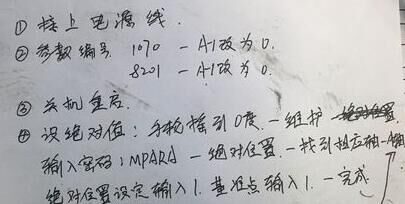 ① 接上电源线.
② 参数编号 1070 - A-1改为0.
8201 - A-1改为0.
③ 关机重启.
④ 设绝对值: 手轮摇到0度. - 维护 -
输入密码: MPARA - 绝对位置. - 找到相应轴 -
绝对位置设定输入1. 基准点输入1. - 完成